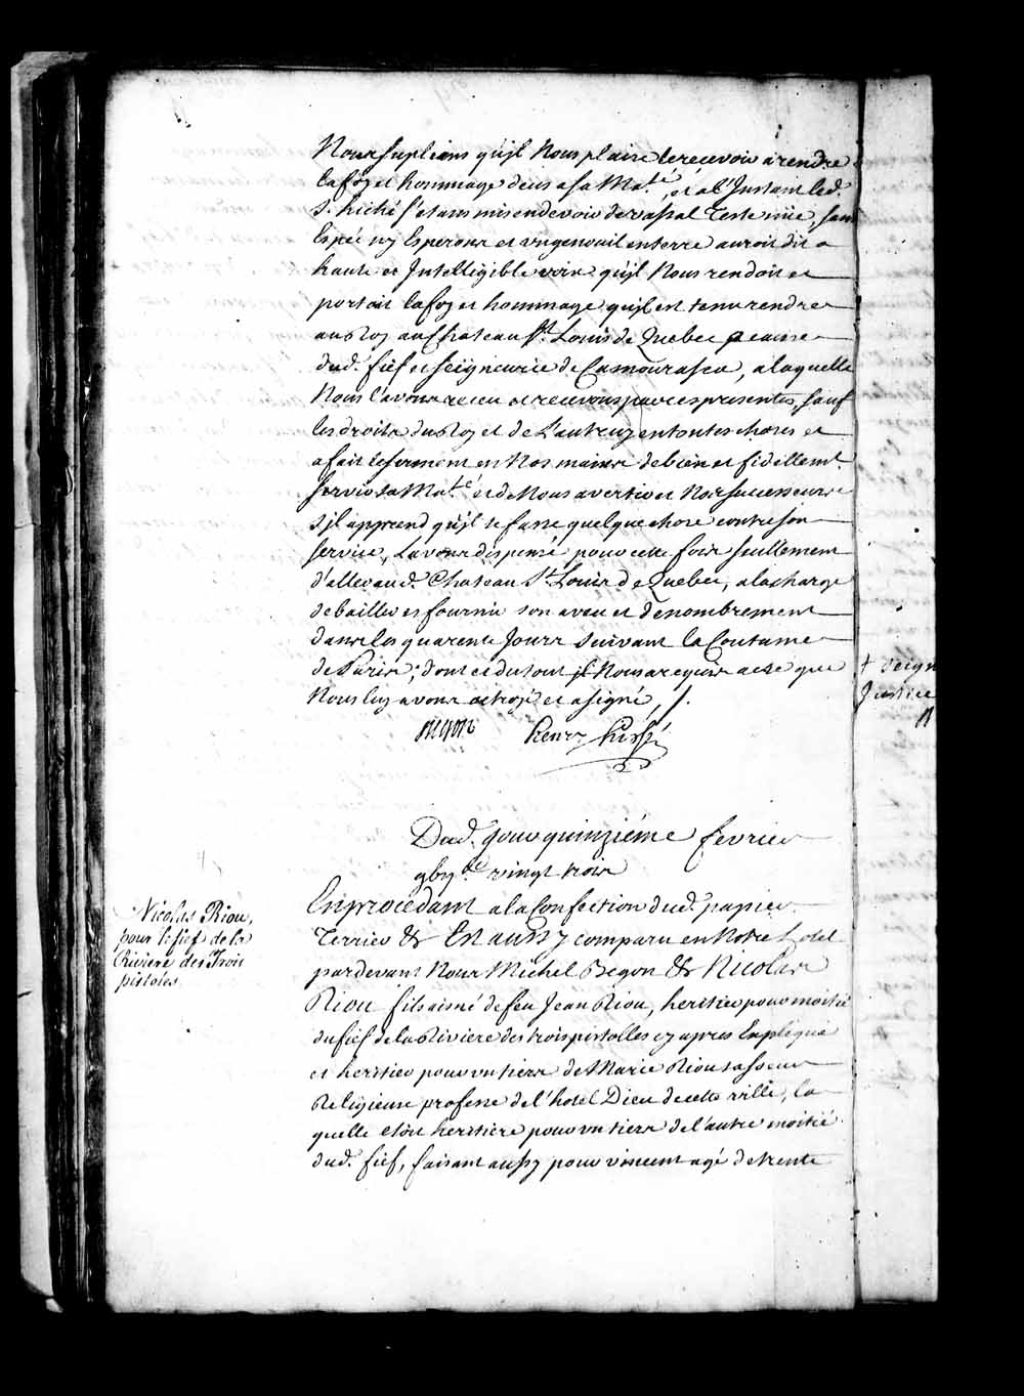 Nous supliant qu'jl Nous plaise le recevoir a rendre
la foy et hommage deus a sa Ma.té, et a l'Jnstant led.
S. hiché s'etans mis en devoir de vassal Teste nüe, sans
Espée ny Esperons et un genouil en terre auroit dit a
haute et Jntelligible voix qu'jl Nous rendoit et
portoit la foy et hommage qu'jl est tenu rendre
au Roy au Chateau St. Louis de Quebec a cause
dud. fief et seigneurie de Camourasca, a laquelle
Nous l'avons receu et recevons par ces presentes, sauf
les droits du Roy et de L'autruy en toutes choses et
a fait le serment en Nos mains de bien et fidellemt.
servir sa Ma.té et de Nous avertir et Nos successeurs
s'jl apprend qu'jl se fasse quelque chose contre son
service, L'avons dispensé pour cette fois seullement
d'aller aud. Chateau St. Louis de Quebec, a la charge
de bailler et fournir son aveu et denombrement
dans les quarente Jours suivant la Coutume
de Paris; dont et du tout jl Nous a requis acte que
Nous luy avons octroyé et a signé, /.
Begon henry hiché
Dud. jour quinziéme fevrier
vingt trois
Nicolas Riou,
pour le fief de la
Riviere des Trois
pistoles
En procedant a la Confection dud. papier
Terrier &c Est aussy comparu en Notre hotel
pardevant Nous Michel Begon &c Nicolas
Riou fils aisné de feu Jean Riou, heritier pour moitié
du fief de la Riviere des trois pistolles cy apres Expliqué
et heritier pour un tiers de Marie Riou sa soeur
Religieuse professe de l'hotel Dieu de cette ville, la
quelle etoit heritiére pour un tiers de l'autre moitié
dud. fief, faisant aussy pour vincent agé de trente
+ seign
Justice